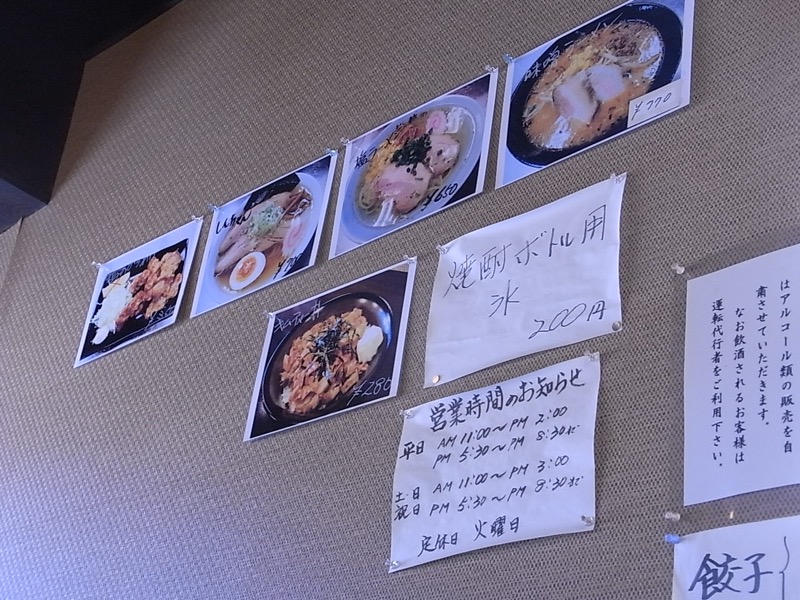 味噌ラーメン
¥770
¥650
¥280
焼酎ボトル用
氷
200円
営業時間のお知らせ
平日 AM 11:00～PM 2:00
PM 5:30～PM 8:30まで
土・日 AM 11:00～PM 3:00
祝日 PM 5:30～PM 8:30まで
定休日 火曜日
はアルコール類の販売を自
粛させていただきます。
なお飲酒されるお客様は
運転代行者をご利用下さい。
餃子